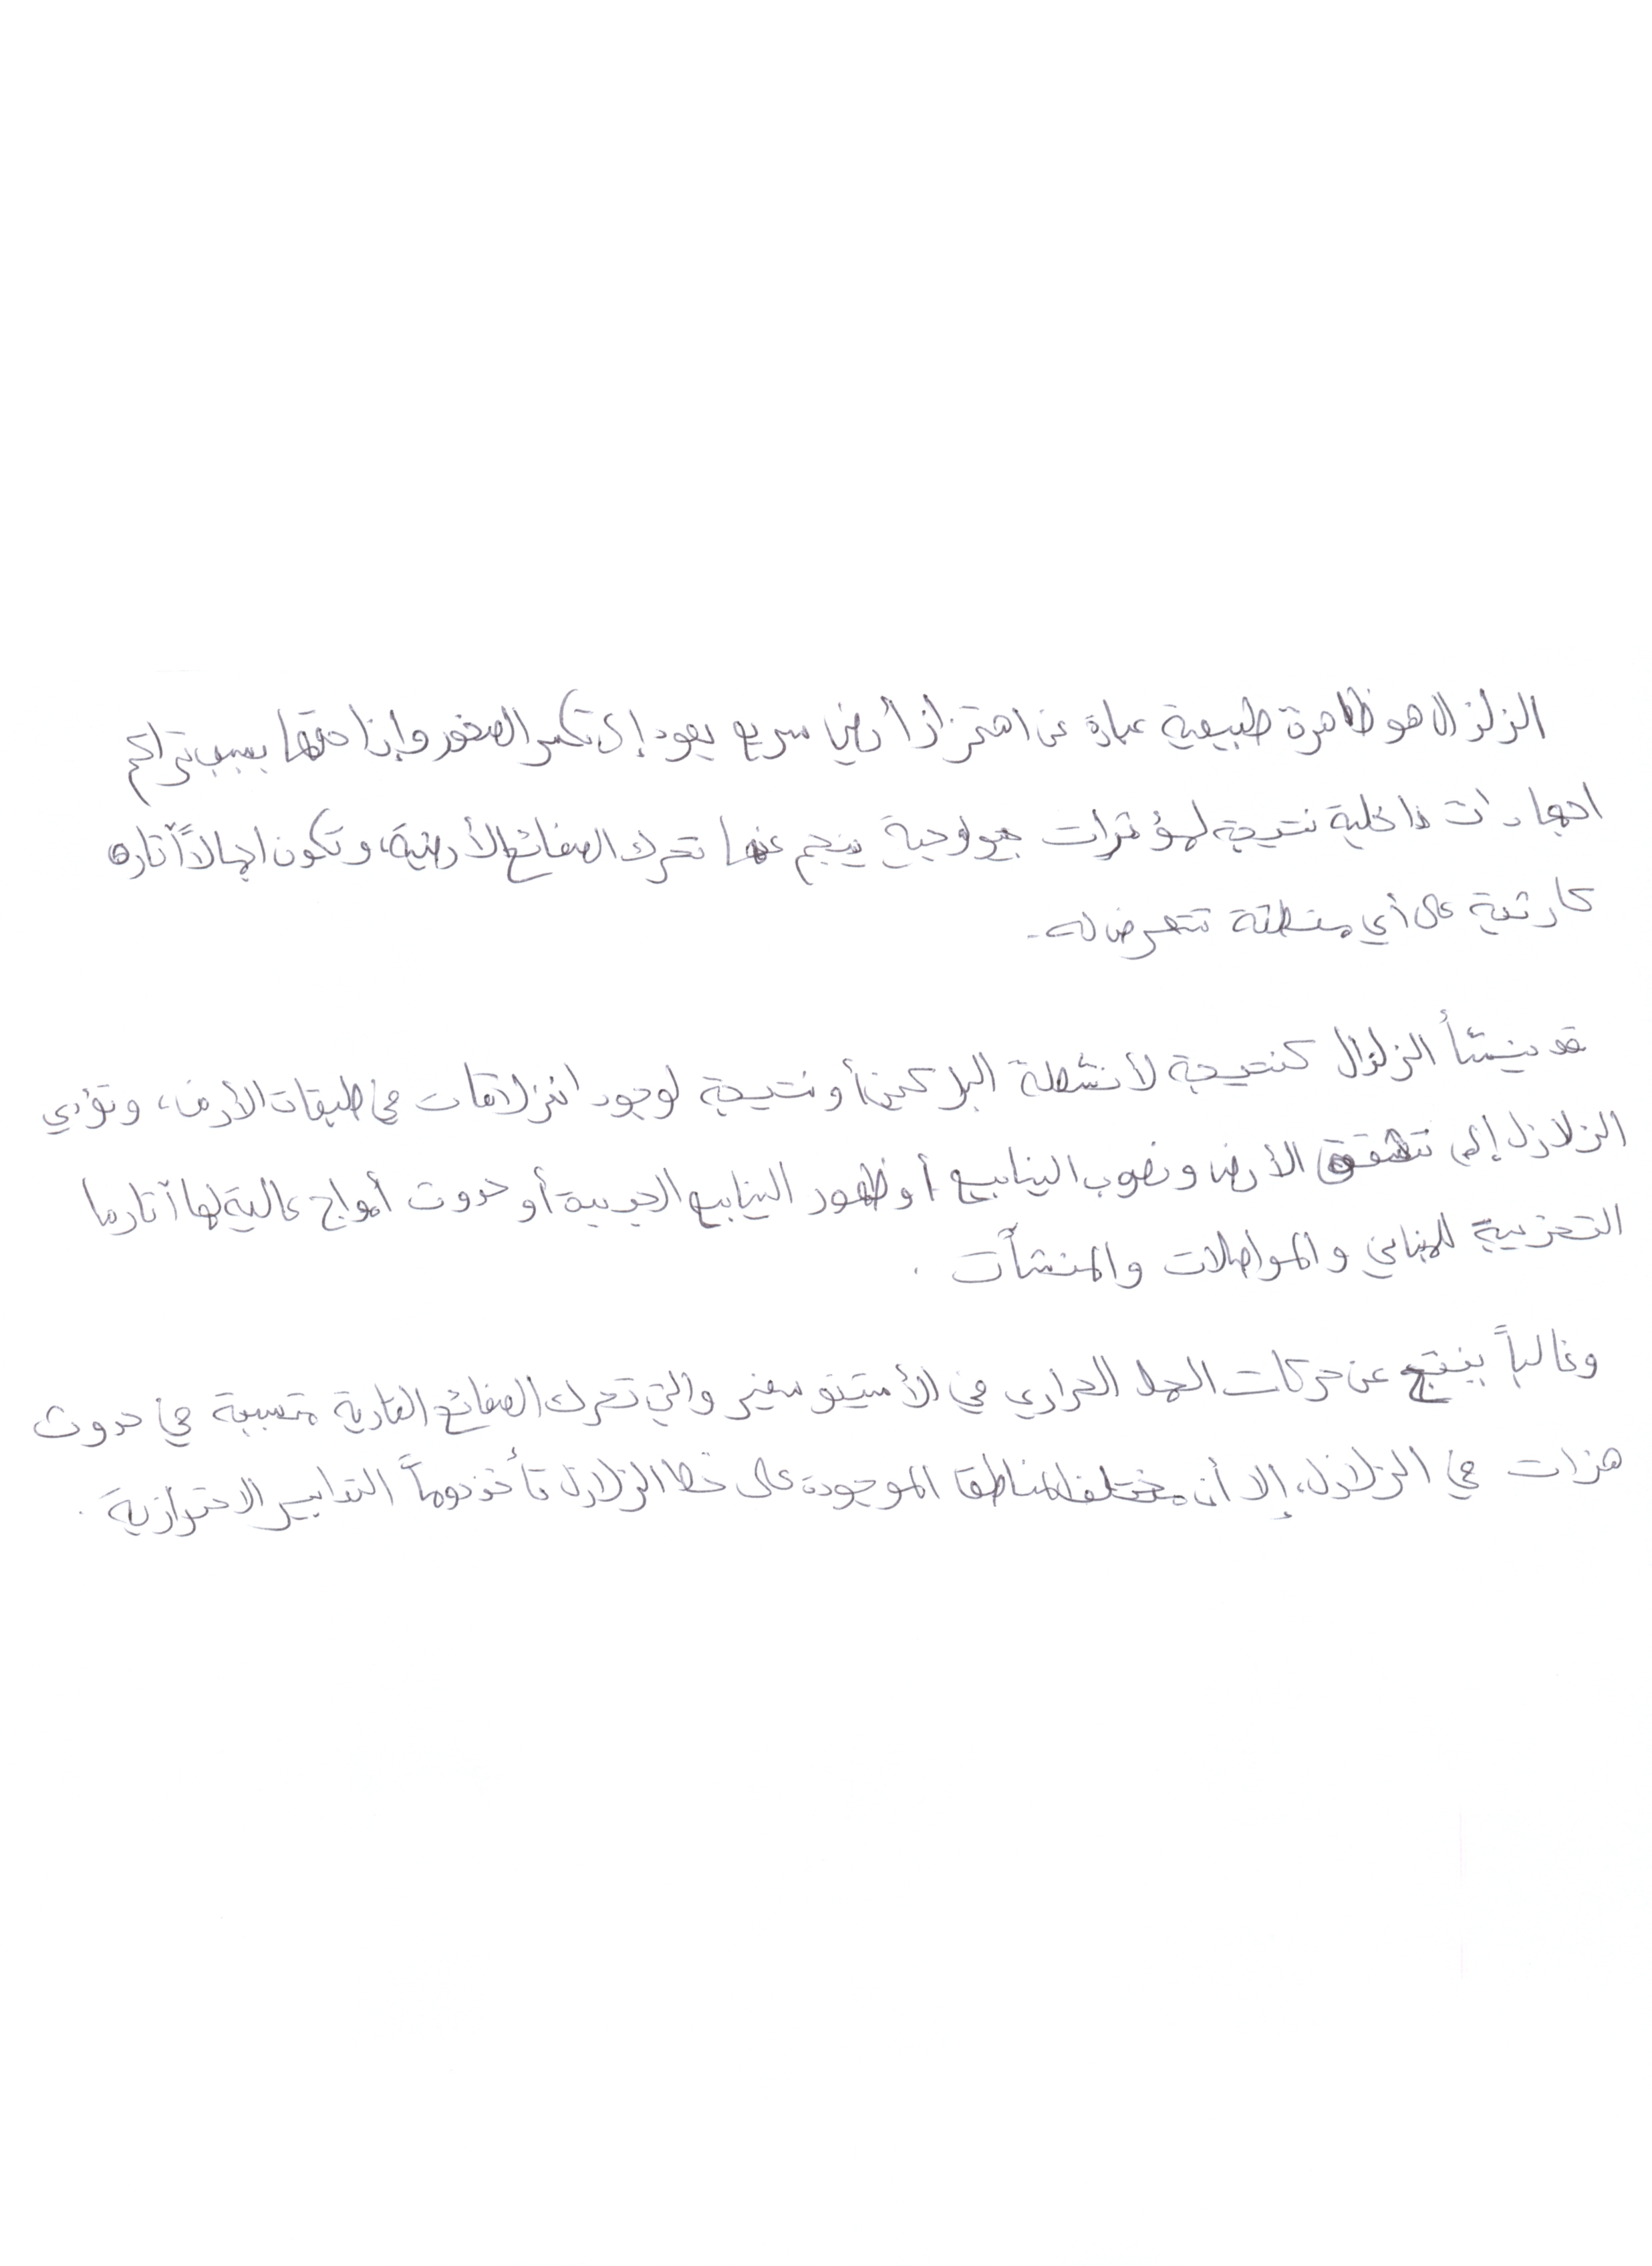 الزلزال هو ظاهرة طبيعية عبارة عن اهتزاز أرضي سريع يعود إلى تكسر الصخور وإزاحتها بسبب تراكم
اجهادات داخلية نتيجة لمؤثرات جيولوجية ينجم عنها تحرك الصفائح الأرضية، وتكون اجمالاً آثاره
كارثية على أي منطقة تتعرض له.
قد ينشأ الزلزال كنتيجة لأنشطة البراكين أو نتيجة لوجود انزلاقات في طبقات الأرض، وتؤدي
الزلازل إلى تشقق الأرض ونضوب الينابيع أو ظهور الينابيع الجديدة أو حدوث أمواج عالية لها آثارها
التخريبية للمباني والمواصلات والمنشآت .
وغالباً ينتج عن حركات الحمل الحراري في الأستينوسفير والتي تحرك الصفائح القارية متسببة في حدوث
هزات هي الزلازل، إلا أن مختلف المناطق الموجودة على خط الزلازل تأخذ دوماً التدابير الاحترازية .